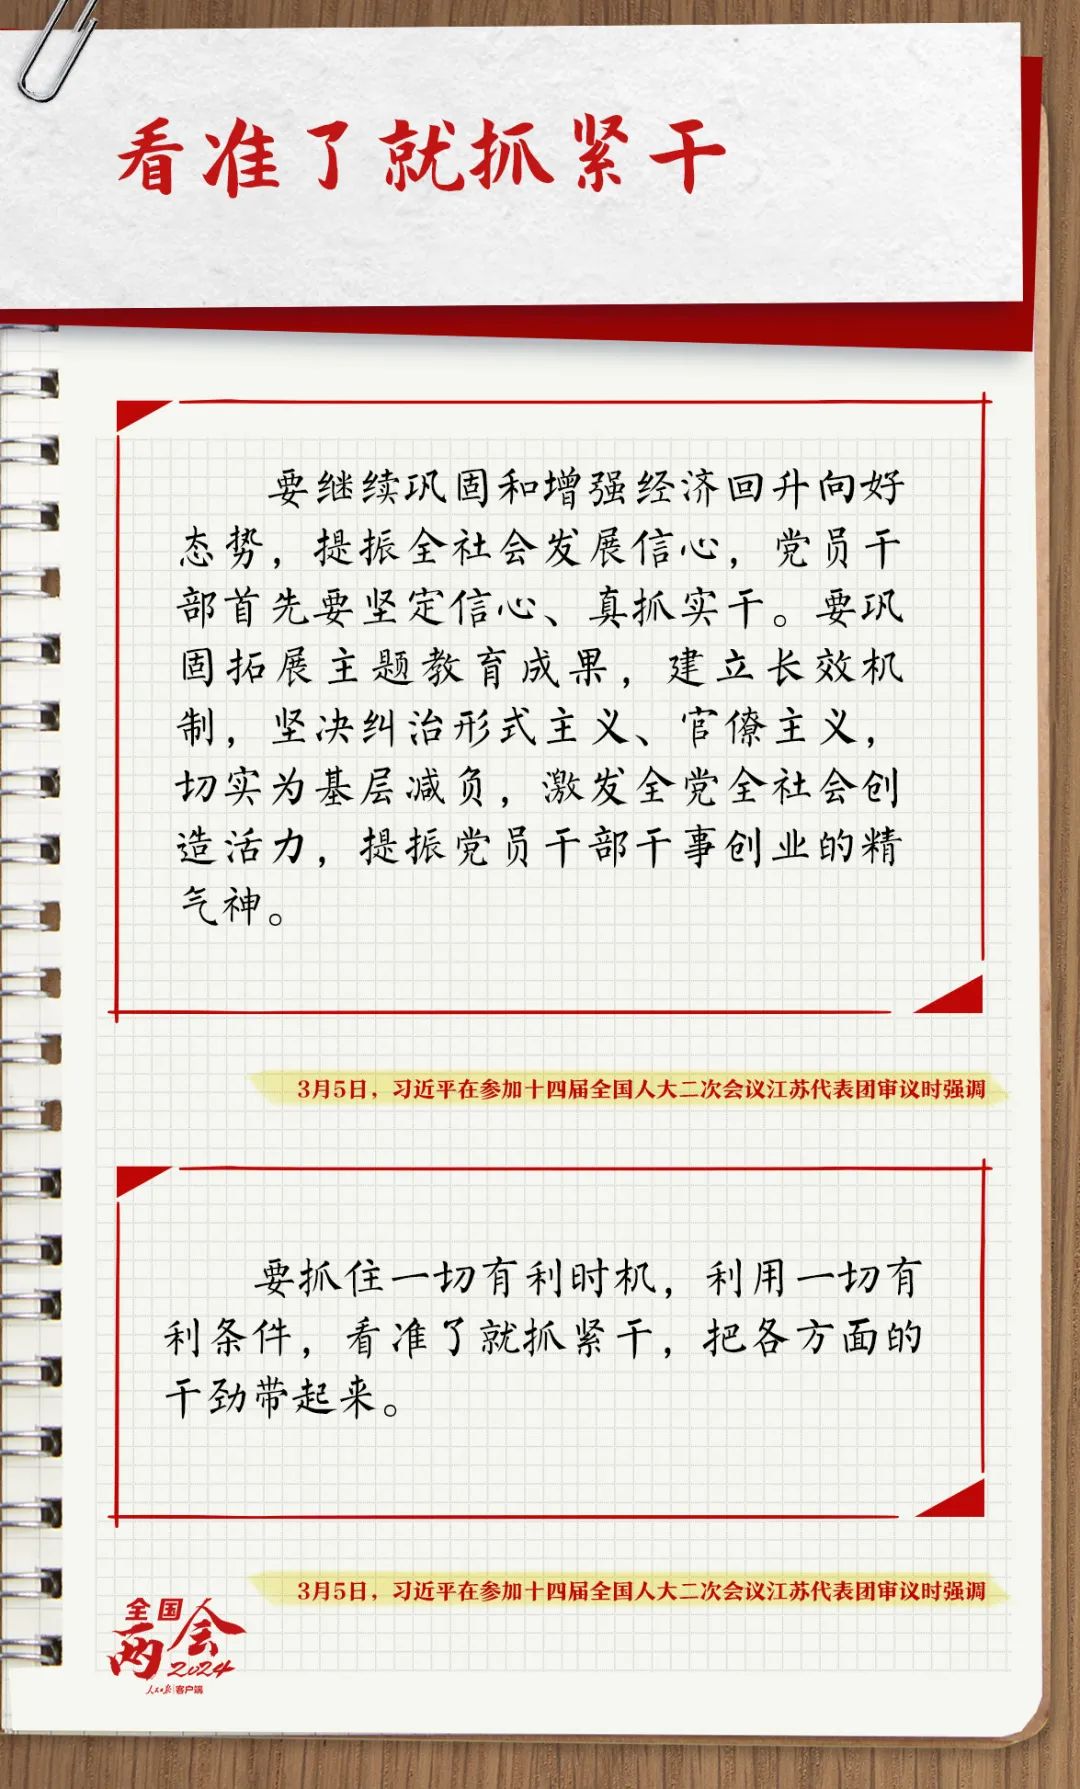 看准了就抓紧干
要继续巩固和增强经济回升向好
态势，提振全社会发展信心，党员干
部首先要坚定信心、真抓实干。要巩
固拓展主题教育成果，建立长效机
制，坚决纠治形式主义、官僚主义，
切实为基层减负，激发全党全社会创
造活力，提振党员干部干事创业的精
气神。
3月5日，习近平在参加十四届全国人大二次会议江苏代表团审议时强调
要抓住一切有利时机，利用一切有
利条件，看准了就抓紧干，把各方面的
干劲带起来。
3月5日，习近平在参加十四届全国人大二次会议江苏代表团审议时强调
全国
两会
2024
人民日报 客户端